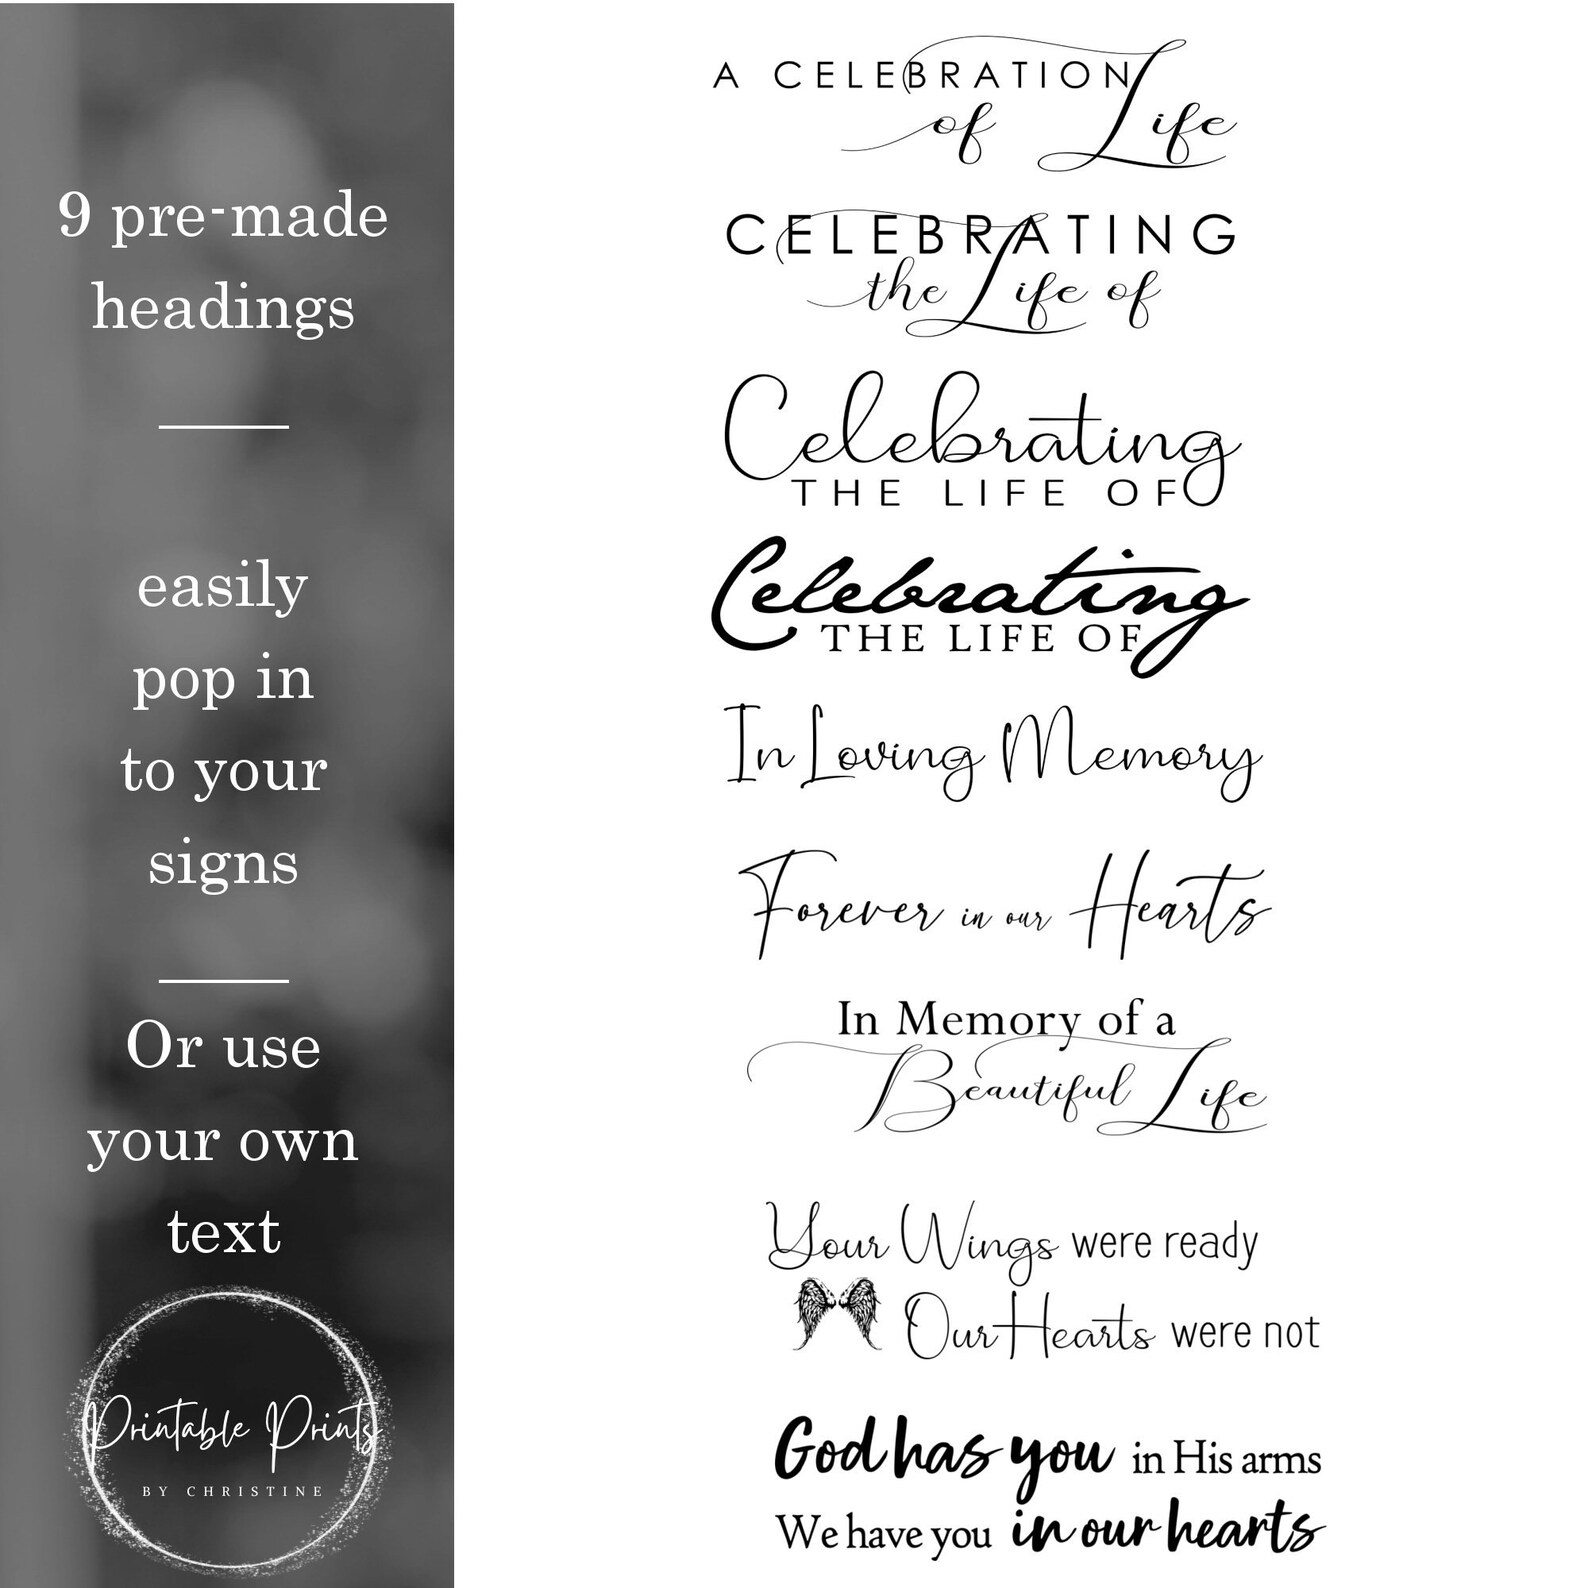 9 pre-made
headings
easily
pop in
to your
signs
Or use
your own
text
Printable Prints
BY CHRISTINE
A CELEBRATION
of Life
CELEBRATING
the Life of
Celebrating
THE LIFE OF
Celebrating
THE LIFE OF
In Loving Memory
Forever in our Hearts
In Memory of a
Beautiful Life
Your Wings were ready
Our Hearts were not
God has you in His arms
We have you in our hearts